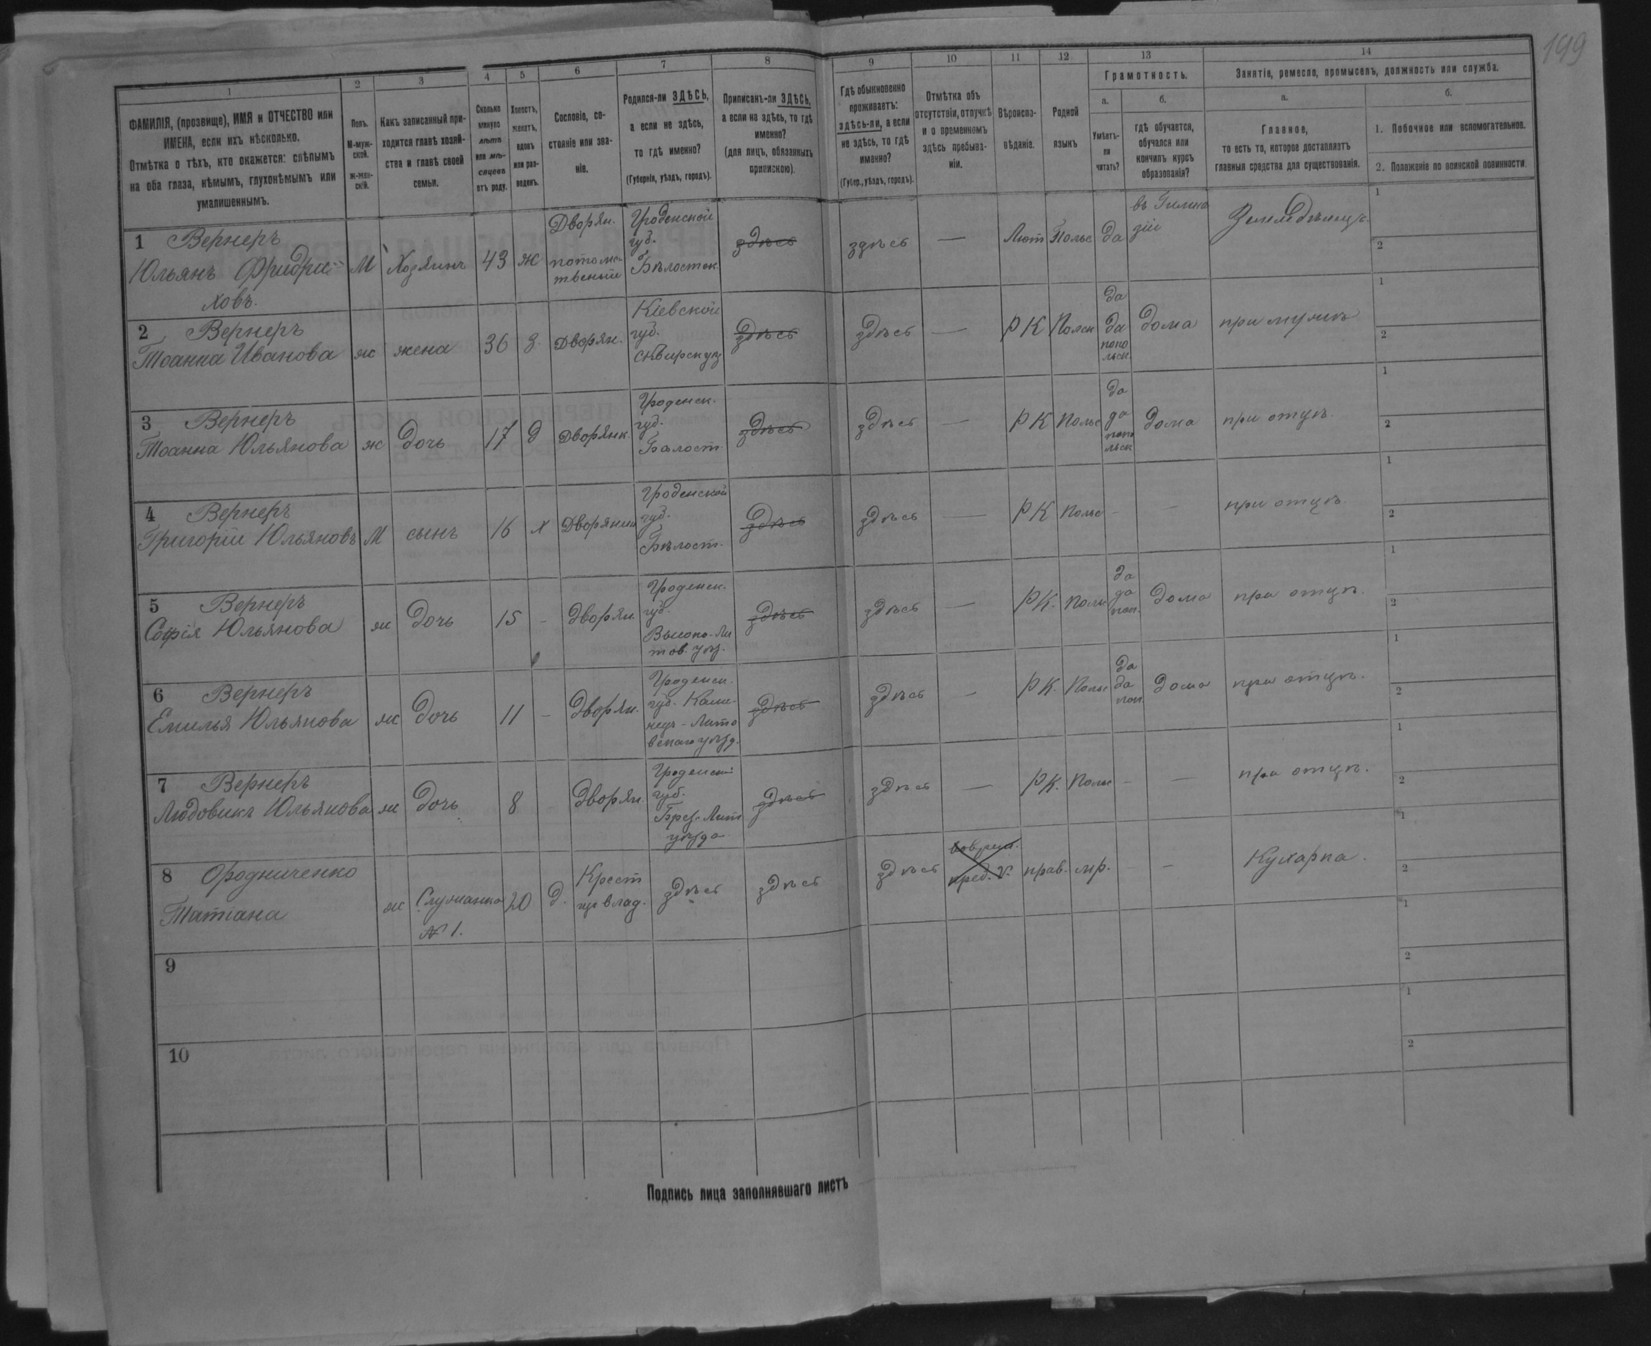 199
1
ФАМИЛІЯ, (прозвище), ИМЯ и ОТЧЕСТВО или
ИМЕНА, если ихъ нѣсколько.
Отмѣтка о тѣхъ, кто окажется: слѣпымъ
на оба глаза, нѣмымъ, глухонѣмымъ или
умалишеннымъ.
2
Полъ.
М-муж-
ской.
Ж-жен-
скій.
3
Какъ записанный при-
ходится главѣ хозяй-
ства и главѣ своей
семьи.
4
Сколько
минуло
лѣтъ
или мѣ-
сяцевъ
отъ роду.
5
Холостъ,
женатъ,
вдовъ
или раз-
веденъ.
6
Сословіе, со-
стояніе или зва-
ніе.
7
Родился-ли ЗДѢСЬ,
а если не здѣсь,
то гдѣ именно?
(Губернія, уѣздъ, городъ).
8
Приписанъ-ли ЗДѢСЬ,
а если не здѣсь, то гдѣ
именно?
(для лицъ, обязанныхъ
припискою).
9
Гдѣ обыкновенно
проживаетъ:
здѣсь-ли, а если
не здѣсь, то гдѣ
именно?
(Губер., уѣздъ, городъ).
10
Отмѣтка объ
отсутствіи, отлучкѣ
и о временномъ
здѣсь пребыва-
ніи.
11
Вѣроиспо-
вѣданіе.
12
Родной
языкъ
13
Грамотность.
а.
Умѣетъ-
ли
читать?
б.
Гдѣ обучается,
обучался или
кончилъ курсъ
образованія?
14
Занятіе, ремесло, промыселъ, должность или служба.
а.
Главное,
то есть то, которое доставляетъ
главныя средства для существованія.
б.
1. Побочное или вспомогательное.
2. Положеніе по воинской повинности
1 Вернеръ
Юльянъ Фридри-
ховъ.
М Хозяинъ 43 ж
Дворян.
потомс
твенный
Гроденской
губ.
Бѣлосток
здѣсь здѣсь — Лют Польс да
въ Гимна
зіи
1
2
2 Вернеръ
Іоанна Иванова ж жена 36 з. Дворян.
Кіевской
губ.
здѣсь здѣсь — РК Польс
да
да
попо
льск
дома при мужѣ
1
2
3 Вернеръ
Іоанна Юльянова ж дочь 17 д Дворянк.
Гроденск.
губ.
Бѣлост
здѣсь здѣсь — РК Польс
да
да
попо
льск
дома при отцѣ
1
2
4 Вернеръ
Григорій Юльяновъ М сынъ 16 х Дворянин
Гроденской
губ.
Бѣлост.
здѣсь здѣсь — РК Польс - — при отцѣ
1
2
5 Вернеръ
Софія Юльянова ж дочь 15 - Дворян
Гроденск.
губ.
Высоко-Ли
тов. уѣз.
здѣсь здѣсь — РК. Поль
да
да
поп.
дома при отцѣ.
1
2
6 Вернеръ
Емилья Юльянова ж дочь 11 - Дворян.
Гроденск.
губ. Каме-
нецъ-Лито
вскаго уѣзд.
здѣсь здѣсь — РК. Польс
да
да
поп.
дома при отцѣ.
1
2
7 Вернеръ
Людовика Юльянова ж дочь 8 Дворян
Гроденской
губ.
Брес-Лит
уѣзда
здѣсь здѣсь — РК. Польс - — при отцѣ.
1
2
8 Ородниченко
Татіана ж
Служанка
№ 1.
20 д.
Крест
здѣсь здѣсь здѣсь
прав. мр. — Кухарка.
1
2
9
1
2
10
1
2
Подпись лица заполнявшаго листъ